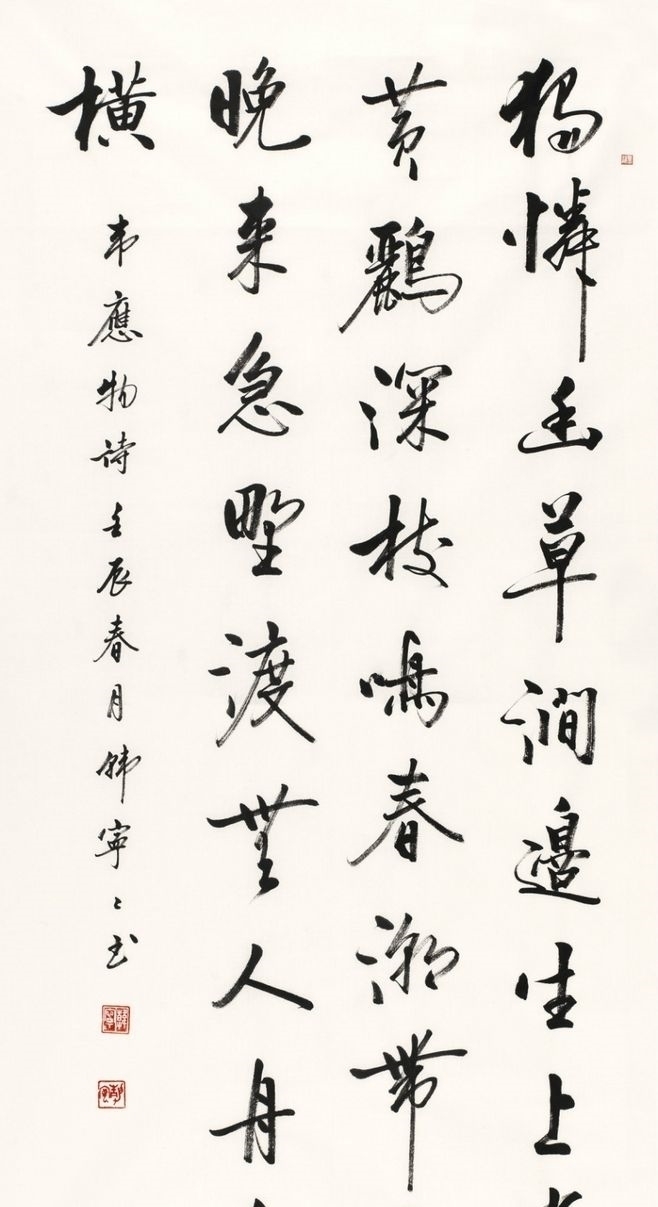 獨憐幽草澗邊生上
黄鸝深枝鳴春潮帶
晚來急野渡無人舟
橫
韦應物诗壬辰春月韩寧〻书